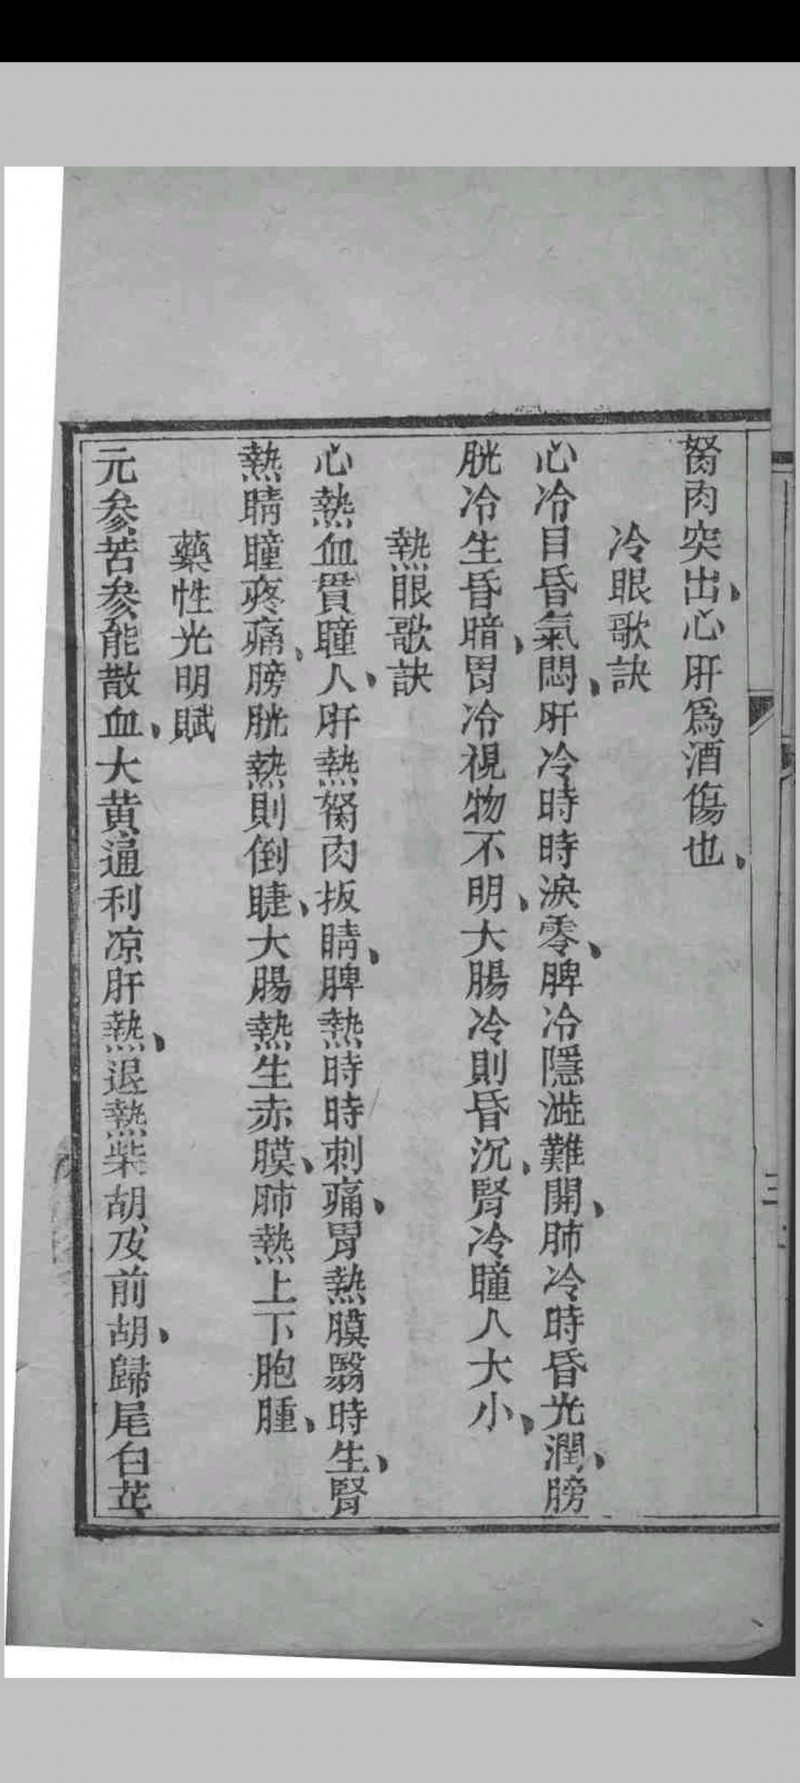 胬肉突出、心肝爲酒傷也、
冷眼歌訣
心冷目昏氣悶、肝冷時時淚零、脾冷隱澁難開、肺冷時昏光潤、膀
胱冷生昏暗、胃冷視物不明、大腸冷則昏沉、腎冷瞳人大小、
熱眼歌訣
心熱血貫瞳人、肝熱胬肉扳睛、脾熱時時刺痛、胃熱膜翳時生、腎
熱睛瞳疼痛、膀胱熱則倒睫、大腸熱生赤膜、肺熱上下胞腫、
藥性光明賦
元參苦參能散血、大黄通利凉肝熱、退熱柴胡及前胡、歸尾白芷
三